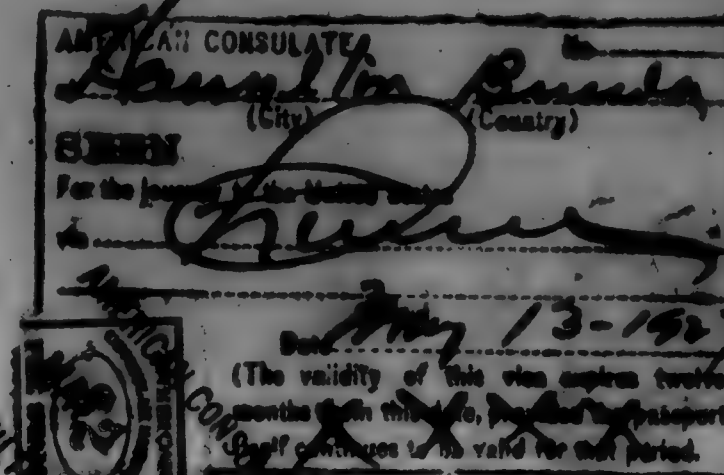 AMERICAN CONSULATE
No.
Hamilton Bermuda
(City) (Country)
SEEN
For the journey to the United States
As
Date May 13-192
(The validity of this visa expires twelve
months from this date, provided the passport
itself continues to be valid for that period.
AMERICAN CONSU